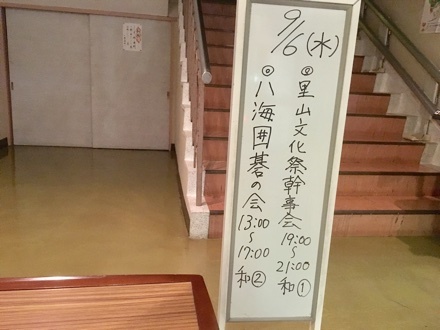 9/6(水)
◎里山文化祭幹事会
19:00
～
21:00
和①
◎八海囲碁の会
13:00
～
17:00
和②